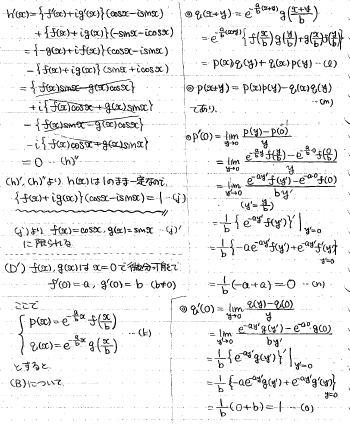 h'(x) = {f'(x)+ig'(x)}(cosx-isinx)
+ {f(x)+ig(x)}(-sinx-icosx)
= {-g(x)+if(x)}(cosx-isinx)
- {f(x)+ig(x)}(sinx+icosx)
= {f(x)sinx-g(x)cosx}
+ i{f(x)cosx+g(x)sinx}
- {f(x)sinx-g(x)cosx}
- i{f(x)cosx+g(x)sinx}
= 0 …(h)''
(h)', (h)''より h(x)は1のまま一定なので、
{f(x)+ig(x)}(cosx-isinx) = 1 …(j)
(j)より f(x)=cosx, g(x)=sinx …(j)'
に限られる
(D') f(x), g(x)は x=0で微分可能で
f'(0)=a, g'(0)=b (b≠0)
ここで
{ p(x) = e^{-\frac{a}{b}x} f(\frac{x}{b})
q(x) = e^{-\frac{a}{b}x} g(\frac{x}{b}) …(k)
とすると
(B)について
◎ q(x+y) = e^{-\frac{a}{b}(x+y)} g(\frac{x+y}{b})
= e^{-\frac{a}{b}(x+y)} {f(\frac{x}{b})g(\frac{y}{b})+g(\frac{x}{b})f(\frac{y}{b})}
= p(x)q(y) + q(x)p(y) …(l)
◎ p(x+y) = p(x)p(y) - q(x)q(y) …(m)
であり、
◎ p'(0) = lim_{y→0} \frac{p(y)-p(0)}{y}
= lim_{y→0} \frac{e^{-\frac{a}{b}y}f(\frac{y}{b})-e^{-\frac{a}{b}0}f(\frac{0}{b})}{y}
= lim_{y'→0} \frac{e^{-ay'}f(y')-e^{-a0}f(0)}{by'}
(y'=\frac{y}{b})
= \frac{1}{b}{e^{-ay'}f(y')}'|_{y'=0}
= \frac{1}{b}{-ae^{-ay'}f(y')+e^{-ay'}f'(y')}_{y'=0}
= \frac{1}{b}(-a+a) = 0 …(n)
◎ q'(0) = lim_{y→0} \frac{q(y)-q(0)}{y}
= lim_{y'→0} \frac{e^{-ay'}g(y')-e^{-a0}g(0)}{by'}
= \frac{1}{b}{e^{-ay'}g(y')}'|_{y'=0}
= \frac{1}{b}{-ae^{-ay'}g(y')+e^{-ay'}g'(y')}_{y'=0}
= \frac{1}{b}(0+b) = 1 …(o)